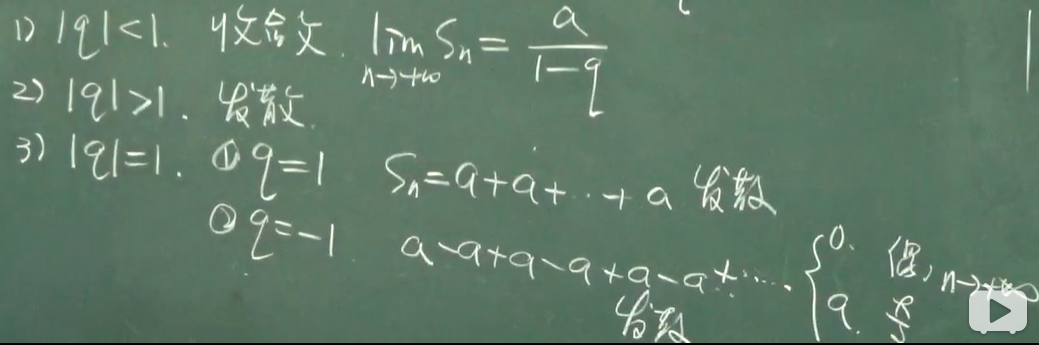 1) |q|<1. 收敛. lim n→+∞ Sn = a/(1-q)
2) |q|>1. 发散.
3) |q|=1. ① q=1 Sn=a+a+…+a 发散
② q=-1 a-a+a-a+a-a+…… { 0. 偶, n→+∞
a. 奇
发散